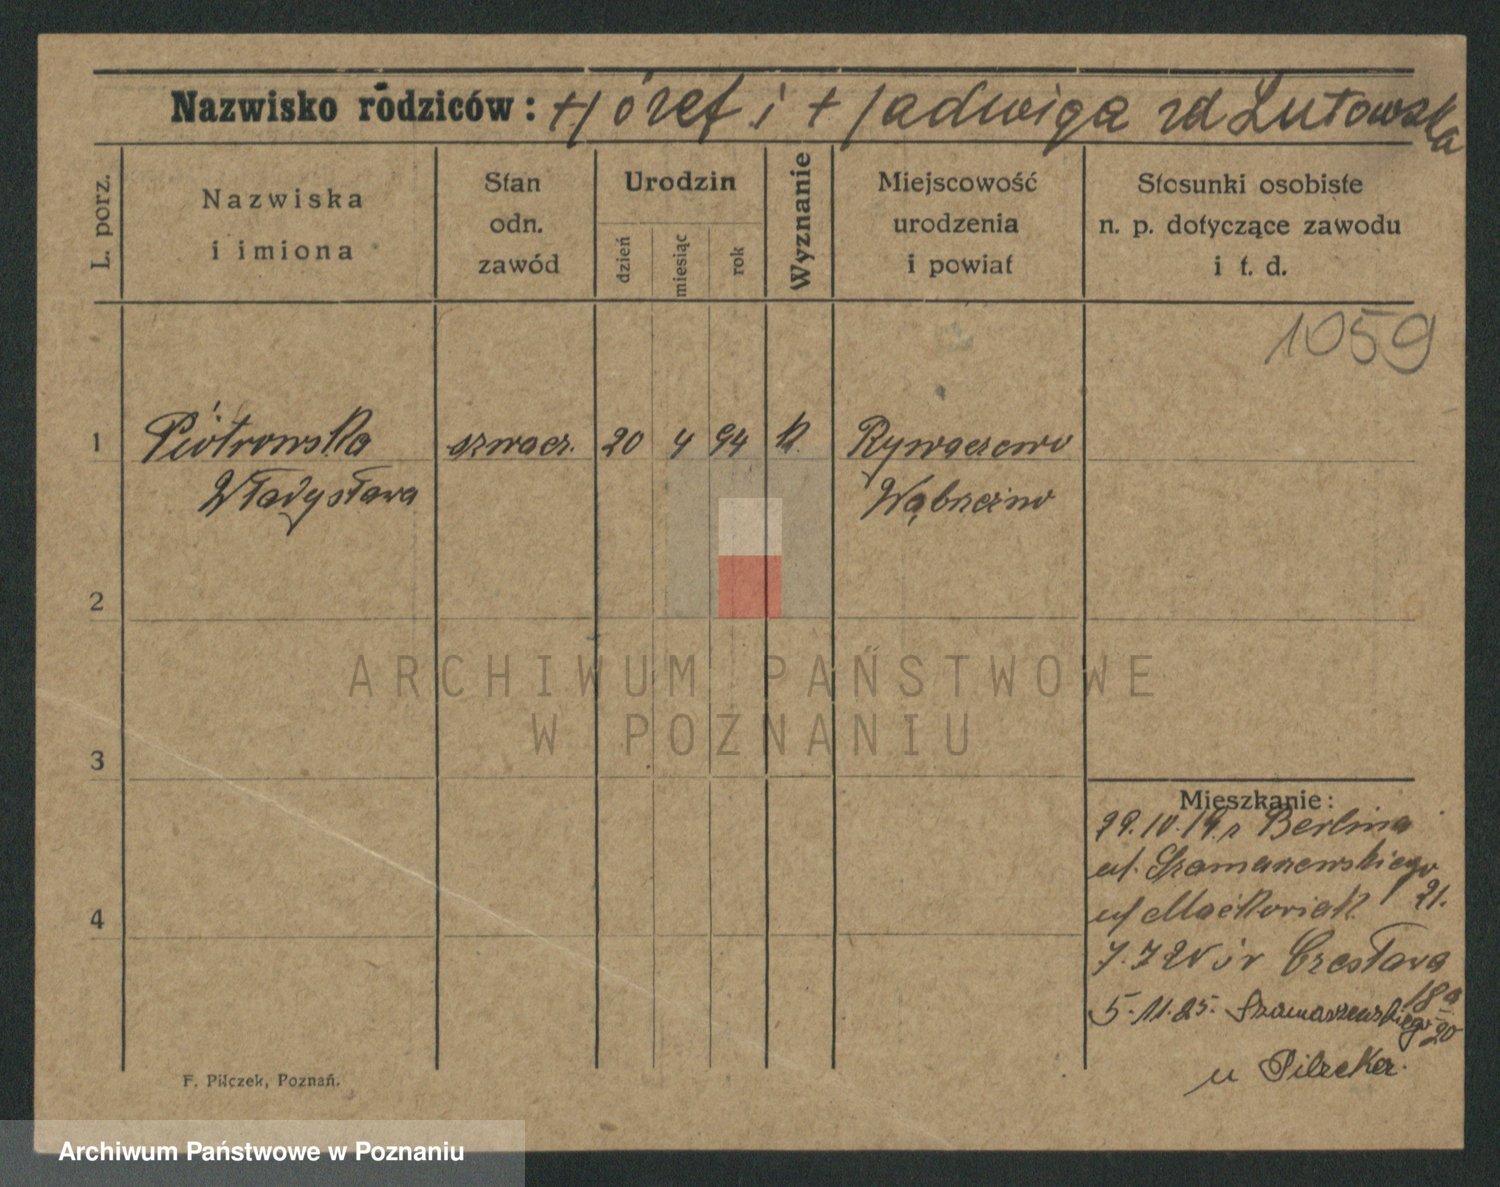 Nazwisko rodziców: + Józef i + Jadwiga zd Lutowska
L. porz.
Nazwiska
i imiona
Stan
odn.
zawód
Urodzin
dzień
miesiąc
rok
Wyznanie
Miejscowość
urodzenia
i powiat
Stosunki osobiste
n. p. dotyczące zawodu
i t. d.
1059
1 Piotrowska szwacz. 20 4 94 k. Rywaczewo
Władysława Wąbrzeźno
2
ARCHIWUM PAŃSTWOWE
W POZNANIU
3
Mieszkanie:
29.10.19. z Berlina
ul. Szamarzewskiego
21.
u/ Maćkowiak
4
7.7 Czesława
18a
5.11.25. Szamarzewskiego
20
u Pilzeker.
F. Pilczek, Poznań.
Archiwum Państwowe w Poznaniu